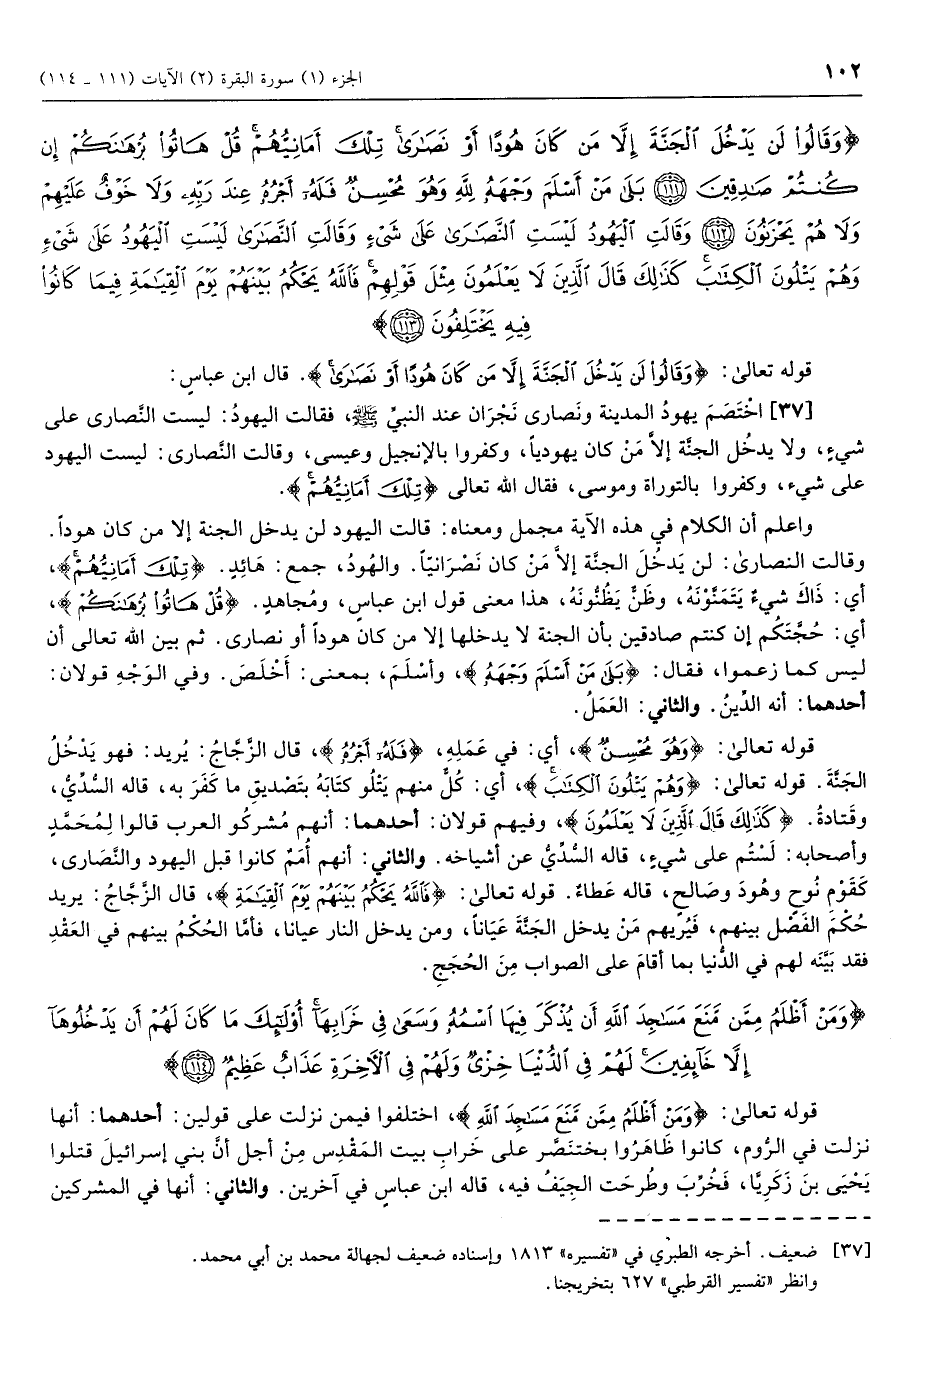 ١٠٢
الجزء (١) سورة البقرة (٢) الآيات (١١١ ـ ١١٤)
﴿وَقَالُواْ لَن يَدْخُلَ ٱلْجَنَّةَ إِلَّا مَن كَانَ هُودًا أَوْ نَصَـٰرَىٰۗ تِلْكَ أَمَانِيُّهُمْۗ قُلْ هَاتُواْ بُرْهَـٰنَكُمْ إِن
كُنتُمْ صَـٰدِقِينَ ﴿١١١﴾ بَلَىٰ مَنْ أَسْلَمَ وَجْهَهُۥ لِلَّهِ وَهُوَ مُحْسِنٌ فَلَهُۥٓ أَجْرُهُۥ عِندَ رَبِّهِۦ وَلَا خَوْفٌ عَلَيْهِمْ
وَلَا هُمْ يَحْزَنُونَ ﴿١١٢﴾ وَقَالَتِ ٱلْيَهُودُ لَيْسَتِ ٱلنَّصَـٰرَىٰ عَلَىٰ شَىْءٍ وَقَالَتِ ٱلنَّصَـٰرَىٰ لَيْسَتِ ٱلْيَهُودُ عَلَىٰ شَىْءٍ
وَهُمْ يَتْلُونَ ٱلْكِتَـٰبَۗ كَذَٰلِكَ قَالَ ٱلَّذِينَ لَا يَعْلَمُونَ مِثْلَ قَوْلِهِمْۚ فَٱللَّهُ يَحْكُمُ بَيْنَهُمْ يَوْمَ ٱلْقِيَـٰمَةِ فِيمَا كَانُواْ
فِيهِ يَخْتَلِفُونَ ﴿١١٣﴾﴾
قوله تعالىٰ: ﴿وَقَالُواْ لَن يَدْخُلَ ٱلْجَنَّةَ إِلَّا مَن كَانَ هُودًا أَوْ نَصَـٰرَىٰۗ﴾. قال ابن عباسٍ:
[٣٧] اخْتَصَمَ يهودُ المدينة ونَصارى نَجْرَان عند النبيِّ ﷺ، فقالت اليهودُ: ليست النَّصارى على
شيءٍ، ولا يدخُل الجنَّة إلاَّ مَنْ كان يهودياً، وكفروا بالإنجيل وعيسى، وقالت النَّصارى: ليست اليهود
على شيء، وكفروا بالتوراة وموسى، فقال الله تعالى ﴿تِلْكَ أَمَانِيُّهُمْۗ﴾.
واعلم أن الكلام في هذه الآية مجمل ومعناه: قالت اليهود لن يدخل الجنة إلا من كان هوداً.
وقالت النصارىٰ: لن يَدخُلَ الجنَّة إلاَّ مَنْ كان نَصْرَانيّاً. والهُودُ، جمع: هَائِدٍ. ﴿تِلْكَ أَمَانِيُّهُمْۗ﴾،
أي: ذَاكَ شيءٌ يَتَمَنَّوْنَهُ، وظَنٌّ يَظُنُّونَهُ، هذا معنى قول ابن عباسٍ، ومُجاهدٍ. ﴿قُلْ هَاتُواْ بُرْهَـٰنَكُمْ﴾،
أي: حُجَّتَكُم إن كنتم صادقين بأن الجنة لا يدخلها إلا من كان هوداً أو نصارى. ثم بين الله تعالى أن
ليس كما زعموا، فقال: ﴿بَلَىٰ مَنْ أَسْلَمَ وَجْهَهُۥ﴾، وأسْلَمَ، بمعنى: أَخْلَصَ. وفي الوَجْهِ قولان:
أحدهما: أنه الدِّينُ. والثاني: العَمَلُ.
قوله تعالىٰ: ﴿وَهُوَ مُحْسِنٌ﴾، أي: في عَمَلِهِ، ﴿فَلَهُۥٓ أَجْرُهُۥ﴾، قال الزَّجَّاجُ: يُريد: فهو يَدْخُلُ
الجَنَّةَ. قوله تعالىٰ: ﴿وَهُمْ يَتْلُونَ ٱلْكِتَـٰبَۗ﴾، أي: كُلٌّ منهم يَتْلُو كتابَهُ بتَصْديقِ ما كَفَرَ به، قاله السُّدِّيُّ،
وقَتادةُ. ﴿كَذَٰلِكَ قَالَ ٱلَّذِينَ لَا يَعْلَمُونَ﴾، وفيهم قولان: أحدهما: أنهم مُشركُو العرب قالوا لِمُحَمَّدٍ
وأصحابه: لَسْتُم على شيءٍ، قاله السُّدِّيُّ عن أشياخه. والثاني: أنهم أُمَمٌ كانوا قبل اليهود والنَّصَارى،
كَقَوْم نُوحٍ وهُودَ وصَالحٍ، قاله عَطاءٌ. قوله تعالىٰ: ﴿فَٱللَّهُ يَحْكُمُ بَيْنَهُمْ يَوْمَ ٱلْقِيَـٰمَةِ﴾، قال الزَّجَّاجُ: يريد
حُكْمَ الفَصْل بينهم، فَيُريهم مَنْ يدخل الجَنَّةَ عَيَاناً، ومن يدخل النار عيانا، فأمَّا الحُكْمُ بينهم في العَقْدِ
فقد بَيَّنَه لهم في الدُّنيا بما أقامَ على الصواب مِنَ الحُجَجِ.
﴿وَمَنْ أَظْلَمُ مِمَّن مَّنَعَ مَسَـٰجِدَ ٱللَّهِ أَن يُذْكَرَ فِيهَا ٱسْمُهُۥ وَسَعَىٰ فِى خَرَابِهَآۚ أُوْلَـٰٓئِكَ مَا كَانَ لَهُمْ أَن يَدْخُلُوهَآ
إِلَّا خَآئِفِينَۚ لَهُمْ فِى ٱلدُّنْيَا خِزْىٌ وَلَهُمْ فِى ٱلْـَٔاخِرَةِ عَذَابٌ عَظِيمٌ ﴿١١٤﴾﴾
قوله تعالىٰ: ﴿وَمَنْ أَظْلَمُ مِمَّن مَّنَعَ مَسَـٰجِدَ ٱللَّهِ﴾، اختلفوا فيمن نزلت على قولين: أحدهما: أنها
نزلت في الرُّوم، كانوا ظَاهَرُوا بختنَصَّر على خَرابِ بيت المَقْدِس مِنْ أجل أنَّ بني إسرائيلَ قتلوا
يَحْيَى بنَ زَكَرِيَّا، فَخُرِّبَ وطُرِحَت الجِيَفُ فيه، قاله ابن عباسٍ في آخرين. والثاني: أنها في المشركين
[٣٧] ضعيف. أخرجه الطبري في «تفسيره» ١٨١٣ وإسناده ضعيف لجهالة محمد بن أبي محمد.
وانظر «تفسير القرطبي» ٦٢٧ بتخريجنا.